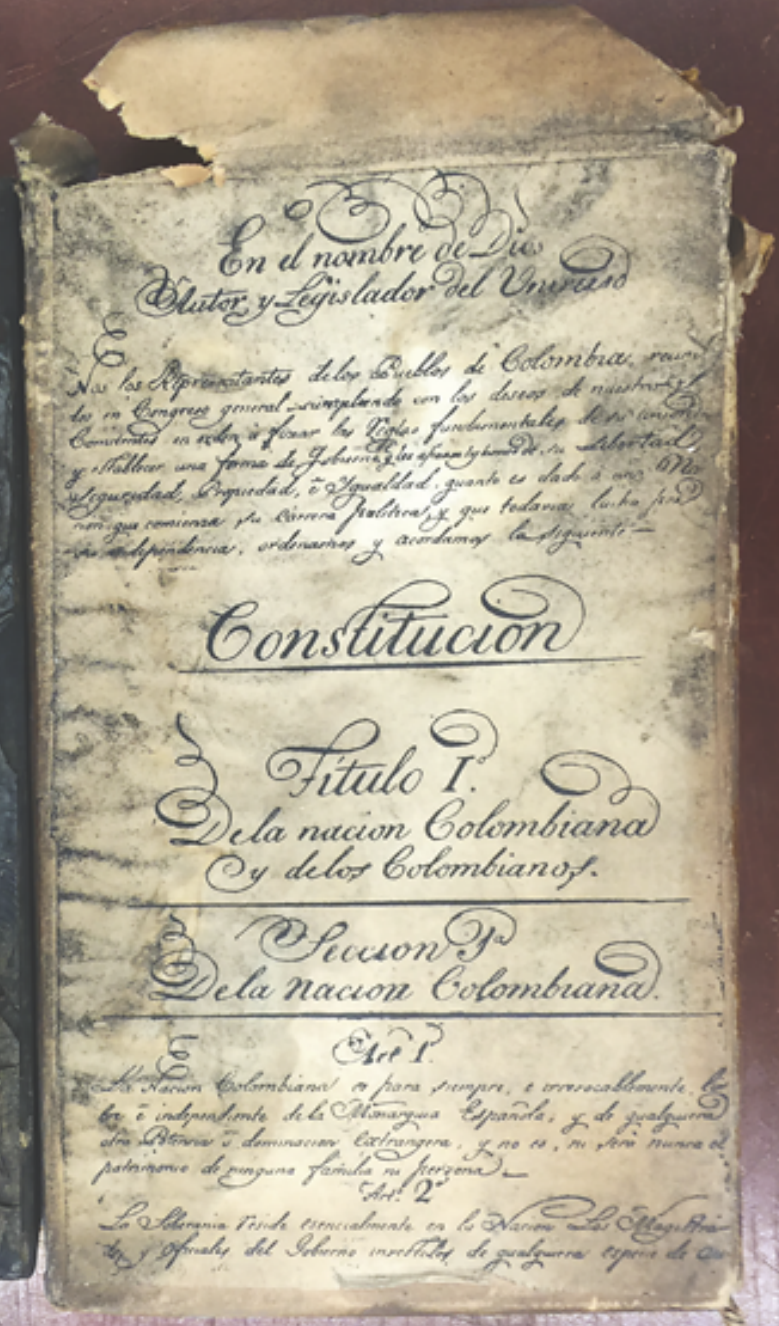 En el nombre de Dios
Autor y Legislador del Universo
Nos los Representantes de los Pueblos de Colombia, reuni
dos en Congreso general cumpliendo con los deseos de nuestros
Comitentes en orden á fixar las reglas fundamentales de su union
y establecer una forma de Gobierno q les afianze su Libertad
Seguridad, Propiedad, é Igualdad, quanto es dado á una Na
cion que comienza su carrera Politica, y que todavia lucha por
su independencia, ordenamos y acordamos la siguiente —
Constitucion
Titulo I.º
De la nacion Colombiana
y de los Colombianos.
Seccion 1ª
De la nacion Colombiana.
Art 1.º
La Nacion Colombiana es para siempre, é irrevocablemente, li
bre é independiente de la Monarquia Española, y de qualquiera
otra Potencia ó dominacion Extrangera, y no es, ni será nunca el
patrimonio de ninguna familia ni persona.
Art. 2º
La Soberania reside esencialmente en la Nacion. Los Magistra
dos y Oficiales del Gobierno investidos de qualquiera especie de au